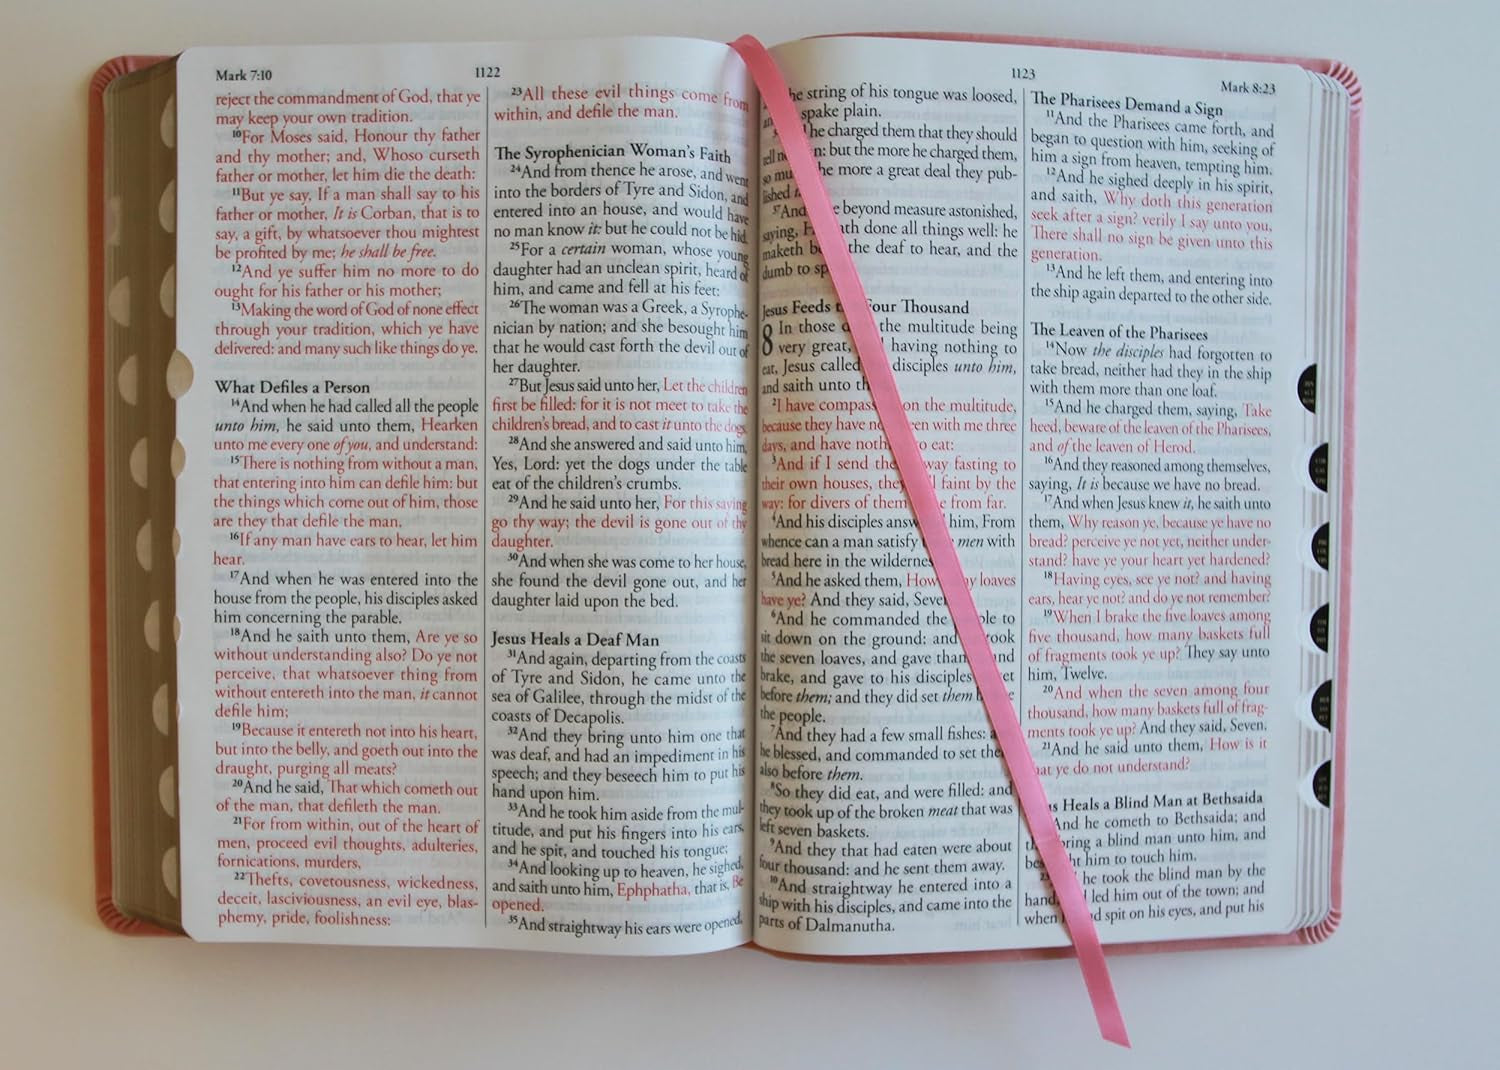 Mark 7:10
1122
reject the commandment of God, that ye
may keep your own tradition.
10For Moses said, Honour thy father
and thy mother; and, Whoso curseth
father or mother, let him die the death:
11But ye say, If a man shall say to his
father or mother, It is Corban, that is to
say, a gift, by whatsoever thou mightest
be profited by me; he shall be free.
12And ye suffer him no more to do
ought for his father or his mother;
13Making the word of God of none effect
through your tradition, which ye have
delivered: and many such like things do ye.
What Defiles a Person
14And when he had called all the people
unto him, he said unto them, Hearken
unto me every one of you, and understand:
15There is nothing from without a man,
that entering into him can defile him: but
the things which come out of him, those
are they that defile the man.
16If any man have ears to hear, let him
hear.
17And when he was entered into the
house from the people, his disciples asked
him concerning the parable.
18And he saith unto them, Are ye so
without understanding also? Do ye not
perceive, that whatsoever thing from
without entereth into the man, it cannot
defile him;
19Because it entereth not into his heart,
but into the belly, and goeth out into the
draught, purging all meats?
20And he said, That which cometh out
of the man, that defileth the man.
21For from within, out of the heart of
men, proceed evil thoughts, adulteries,
fornications, murders,
22Thefts, covetousness, wickedness,
deceit, lasciviousness, an evil eye, blas-
phemy, pride, foolishness:
23All these evil things come from
within, and defile the man.
The Syrophenician Woman's Faith
24And from thence he arose, and went
into the borders of Tyre and Sidon, and
entered into an house, and would have
no man know it: but he could not be hid.
25For a certain woman, whose young
daughter had an unclean spirit, heard of
him, and came and fell at his feet:
26The woman was a Greek, a Syrophe-
nician by nation; and she besought him
that he would cast forth the devil out of
her daughter.
27But Jesus said unto her, Let the children
first be filled: for it is not meet to take the
children's bread, and to cast it unto the dogs.
28And she answered and said unto him,
Yes, Lord: yet the dogs under the table
eat of the children's crumbs.
29And he said unto her, For this saying
go thy way; the devil is gone out of thy
daughter.
30And when she was come to her house,
she found the devil gone out, and her
daughter laid upon the bed.
Jesus Heals a Deaf Man
31And again, departing from the coasts
of Tyre and Sidon, he came unto the
sea of Galilee, through the midst of the
coasts of Decapolis.
32And they bring unto him one that
was deaf, and had an impediment in his
speech; and they beseech him to put his
hand upon him.
33And he took him aside from the mul-
titude, and put his fingers into his ears,
and he spit, and touched his tongue;
34And looking up to heaven, he sighed,
and saith unto him, Ephphatha, that is, Be
opened.
35And straightway his ears were opened,
1123
Mark 8:23
he string of his tongue was loosed,
spake plain.
he charged them that they should
tell : but the more he charged them,
so he more a great deal they pub-
lished
37And beyond measure astonished,
saying, ath done all things well: he
maketh the deaf to hear, and the
dumb to
Jesus Feeds Four Thousand
8 In those the multitude being
very great, having nothing to
eat, Jesus called disciples unto him,
and saith unto
2I have on the multitude,
because they have een with me three
days, and have to eat:
3And if I send way fasting to
their own houses, they faint by the
way: for divers of them from far.
4And his disciples him, From
whence can a man satisfy men with
bread here in the
5And he asked them, How loaves
have ye? And they said,
6And he commanded the to
sit down on the ground: and took
the seven loaves, and gave
brake, and gave to his disciples
before them; and they did set them
the people.
7And they had a few small fishes:
he blessed, and commanded to set
also before them.
8So they did eat, and were filled: and
they took up of the broken meat that was
left seven baskets.
9And they that had eaten were about
four thousand: and he sent them away.
10And straightway he entered into a
ship with his disciples, and came into the
parts of Dalmanutha.
The Pharisees Demand a Sign
11And the Pharisees came forth, and
began to question with him, seeking of
him a sign from heaven, tempting him.
12And he sighed deeply in his spirit,
and saith, Why doth this generation
seek after a sign? verily I say unto you,
There shall no sign be given unto this
generation.
13And he left them, and entering into
the ship again departed to the other side.
The Leaven of the Pharisees
14Now the disciples had forgotten to
take bread, neither had they in the ship
with them more than one loaf.
15And he charged them, saying, Take
heed, beware of the leaven of the Pharisees,
and of the leaven of Herod.
16And they reasoned among themselves,
saying, It is because we have no bread.
17And when Jesus knew it, he saith unto
them, Why reason ye, because ye have no
bread? perceive ye not yet, neither under-
stand? have ye your heart yet hardened?
18Having eyes, see ye not? and having
ears, hear ye not? and do ye not remember?
19When I brake the five loaves among
five thousand, how many baskets full
of fragments took ye up? They say unto
him, Twelve.
20And when the seven among four
thousand, how many baskets full of frag-
ments took ye up? And they said, Seven.
21And he said unto them, How is it
hat ye do not understand?
Heals a Blind Man at Bethsaida
And he cometh to Bethsaida; and
bring a blind man unto him, and
him to touch him.
he took the blind man by the
hand, led him out of the town; and
when spit on his eyes, and put his